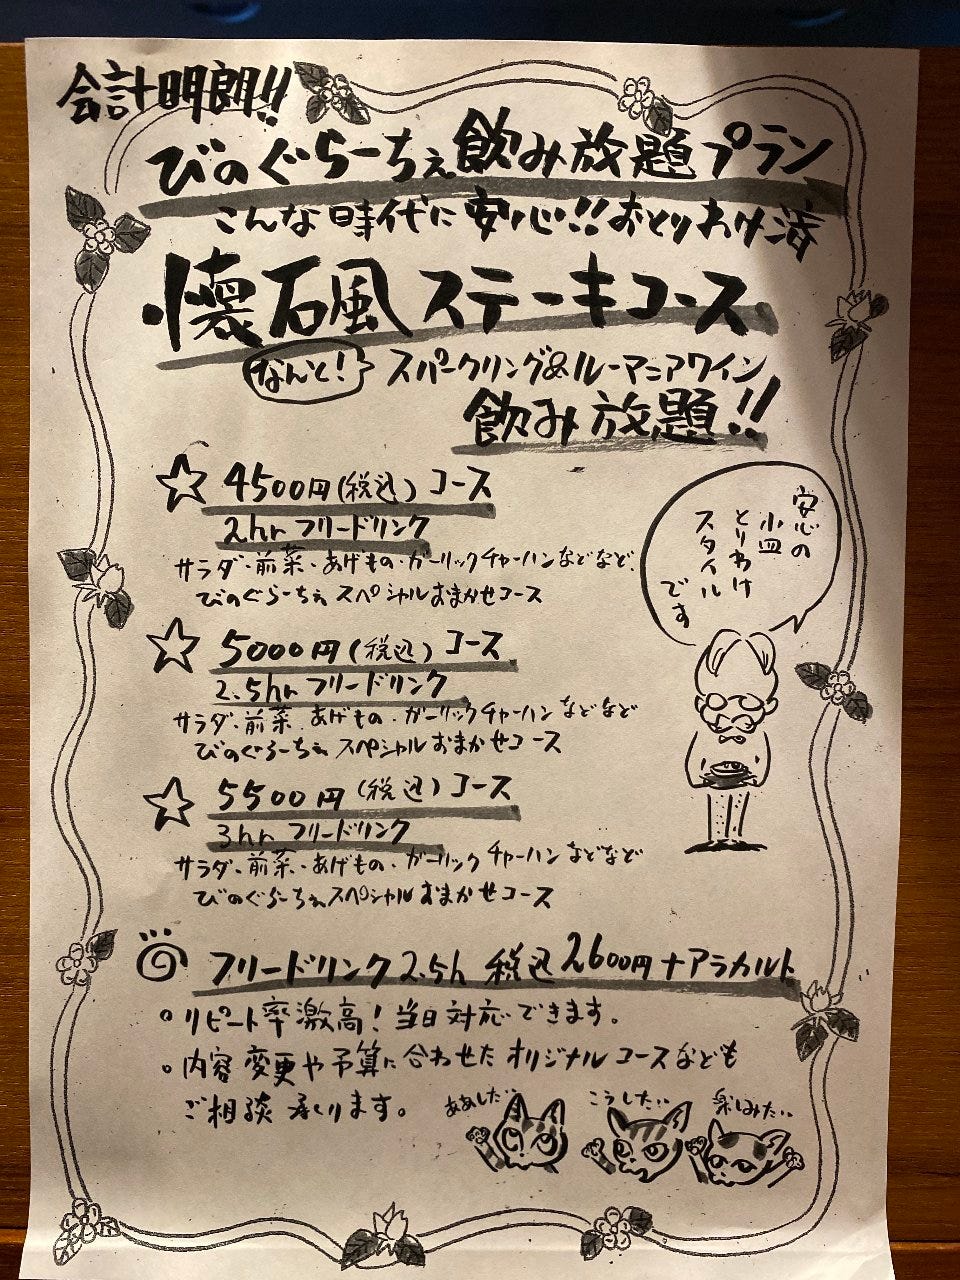 会計明朗!!
びのぐらーちぇ飲み放題プラン
こんな時代に安心!!おとりわけ済
懐石風ステーキコース
なんと! スパークリング&ルーマニアワイン
飲み放題!!
☆ 4500円(税込)コース
2hrフリードリンク
サラダ・前菜・あげもの・ガーリックチャーハンなどなど
びのぐらーちぇスペシャルおまかせコース
☆ 5000円(税込)コース
2.5hrフリードリンク
サラダ・前菜・あげもの・ガーリックチャーハンなどなど
びのぐらーちぇスペシャルおまかせコース
☆ 5500円(税込)コース
3hrフリードリンク
サラダ・前菜・あげもの・ガーリックチャーハンなどなど
びのぐらーちぇスペシャルおまかせコース
安心の
小皿
とりわけ
スタイル
です
フリードリンク2.5h 税込2600円+アラカルト
○リピート率激高!当日対応できます。
○内容変更や予算に合わせたオリジナルコースなども
ご相談承ります。
ああしたい
こうしたい
楽しみたい